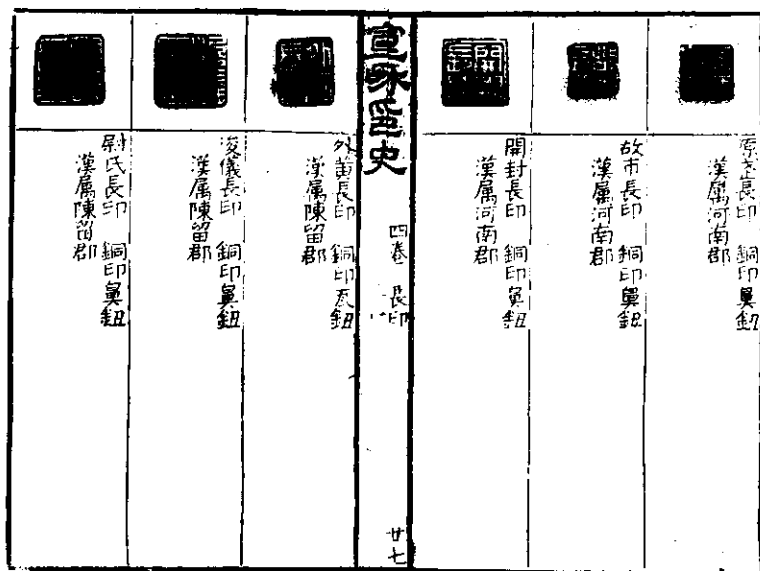 原武長印　銅印鼻鈕
漢属河南郡
故市長印　銅印鼻鈕
漢属河南郡
開封長印　銅印鼻鈕
漢属河南郡
宣和印史
四卷　長印
廿七
外黄長印　銅印瓦鈕
漢属陳留郡
浚儀長印　銅印鼻鈕
漢属陳留郡
尉氏長印　銅印鼻鈕
漢属陳留郡